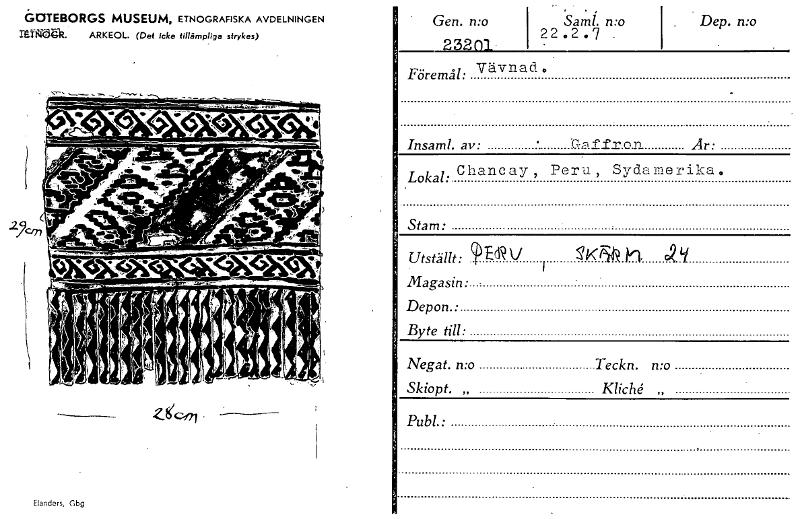 GÖTEBORGS MUSEUM, ETNOGRAFISKA AVDELNINGEN
ETNOGR. ARKEOL. (Det icke tillämpliga strykes)
29cm
28cm
Elanders, Gbg
Gen. n:o Saml. n:o Dep. n:o
23201 22.2.7
Föremål: Vävnad.
Insaml. av: Gaffron År:
Lokal: Chancay, Peru, Sydamerika.
Stam:
Utställt: PERU, SKÄRM 24
Magasin:
Depon.:
Byte till:
Negat. n:o Teckn. n:o
Skiopt. „ Kliché „
Publ.: